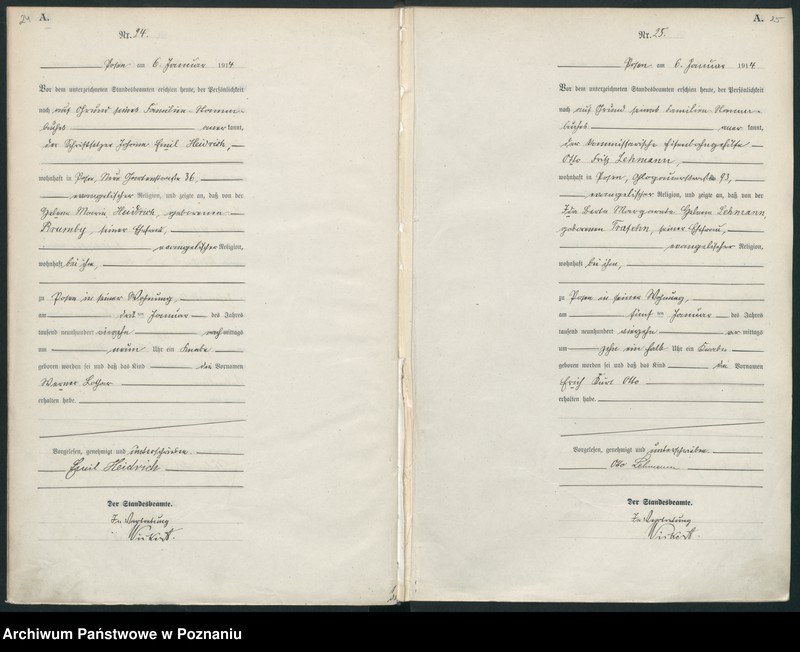 24
A.
Nr. 24.
Posen am 6. Januar 1914
Vor dem unterzeichneten Standesbeamten erschien heute, der Persönlichkeit
nach auf Grund seines Familien-Stamm-
buches anerkannt,
der Schriftsetzer Johann Emil Heidrich,
wohnhaft in Posen, Neue Gartenstraße 36,
evangelischer Religion, und zeigte an, daß von der
Helene Maria Heidrich, geborenen
Brumby, seiner Ehefrau,
evangelischer Religion,
wohnhaft bei ihm,
zu Posen in seiner Wohnung,
am drei ten Januar des Jahres
tausend neunhundert vierzehn nachmittags
um neun Uhr ein Knabe
geboren worden sei und daß das Kind die Vornamen
Werner Lothar
erhalten habe.
Vorgelesen, genehmigt und unterschrieben
Emil Heidrich
Der Standesbeamte.
In Vertretung
A. 25
Nr. 25.
Posen am 6. Januar 1914
Vor dem unterzeichneten Standesbeamten erschien heute, der Persönlichkeit
nach auf Grund seines Familien-Stamm-
buches anerkannt,
der kommissarische Eisenbahngehilfe
Otto Fritz Lehmann,
wohnhaft in Posen, Glogauerstraße 93,
evangelischer Religion, und zeigte an, daß von der
Ida Berta Margarete Helene Lehmann
geborenen, seiner Ehefrau,
evangelischer Religion,
wohnhaft bei ihm,
zu Posen in seiner Wohnung,
am fünf ten Januar des Jahres
tausend neunhundert vierzehn vormittags
um zehn ein halb Uhr ein Knabe
geboren worden sei und daß das Kind die Vornamen
Erich Kurt Otto
erhalten habe.
Vorgelesen, genehmigt und unterschrieben
Otto Lehmann
Der Standesbeamte.
In Vertretung
Archiwum Państwowe w Poznaniu